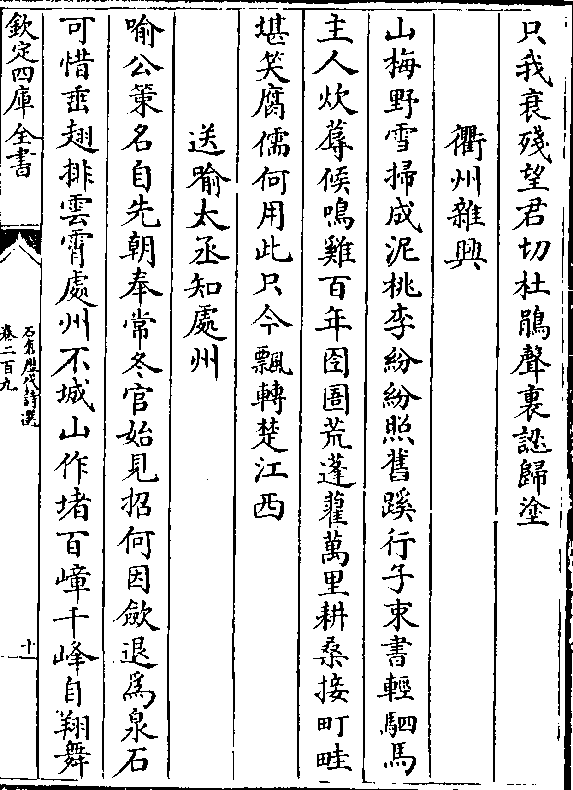 只我衰殘望君切杜鵑聲裏認歸塗
衢州雜興
山梅野雪掃成泥桃李紛紛照舊蹊行子束書輕駟馬
主人炊蓐候鳴雞百年囹圄荒蓬藋萬里耕桑接町畦
堪笑腐儒何用此只今飄轉楚江西
送喻太丞知處州
喻公策名自先朝奉常冬官始見招何因歛退為泉石
可惜垂翅排雲霄處州不城山作堵百嶂千峰自翔舞
欽定四庫全書
石倉歷代詩選
卷二百九
十